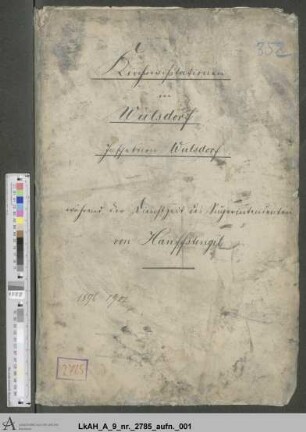 352
Kirchenvisitationen
in
Wulsdorf
Inspektion Wulsdorf
während der Dienstzeit des Superintendenten
von Hanffstengel
1896-1902
2785
LkAH_A_9_nr._2785_aufn._001